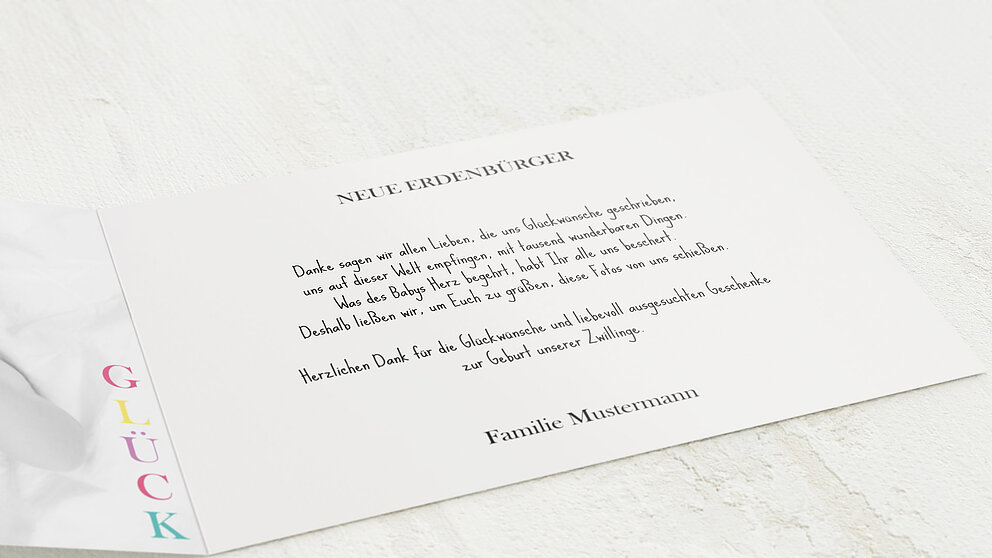 NEUE ERDENBÜRGER
Danke sagen wir allen Lieben, die uns Glückwünsche geschrieben,
uns auf dieser Welt empfingen, mit tausend wunderbaren Dingen.
Was des Babys Herz begehrt, habt Ihr alle uns beschert.
Deshalb ließen wir, um Euch zu grüßen, diese Fotos von uns schießen.
Herzlichen Dank für die Glückwünsche und liebevoll ausgesuchten Geschenke
zur Geburt unserer Zwillinge.
Familie Mustermann
GLÜCK